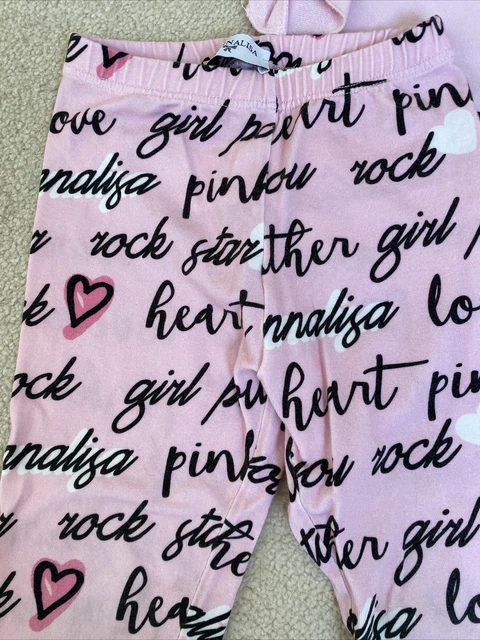 NALISA
love
ove girl heart pin
nnalisa pink you rock
rock star ther girl
heart nnalisa lo
ock girl heart pin
nnalisa pink you rock
rock sta ther girl
hea alisa lo